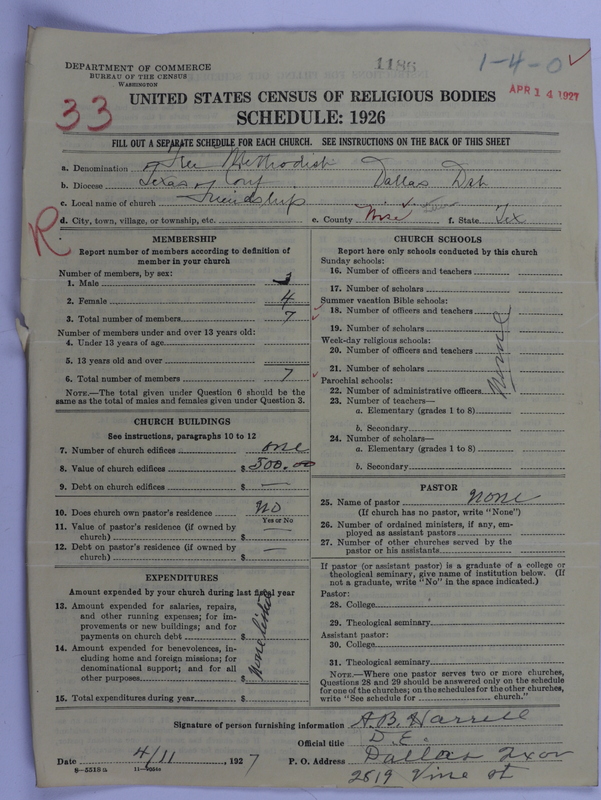 DEPARTMENT OF COMMERCE
BUREAU OF THE CENSUS
WASHINGTON
1186
1-4-0
APR 14 1927
33
UNITED STATES CENSUS OF RELIGIOUS BODIES
SCHEDULE: 1926
FILL OUT A SEPARATE SCHEDULE FOR EACH CHURCH. SEE INSTRUCTIONS ON THE BACK OF THIS SHEET
a. Denomination Free Methodist
b. Diocese Texas Conf Dallas Dst
c. Local name of church Friendship
d. City, town, village, or township, etc. e. County Wise f. State Tex
R
MEMBERSHIP
Report number of members according to definition of
member in your church
Number of members, by sex:
1. Male 3
2. Female 4
3. Total number of members 7
Number of members under and over 13 years old:
4. Under 13 years of age
5. 13 years old and over
6. Total number of members 7
NOTE.—The total given under Question 6 should be
same as the total of males and females given under Question 3.
CHURCH BUILDINGS
See instructions, paragraphs 10 to 12
7. Number of church edifices one
8. Value of church edifices $ 500.00
9. Debt on church edifices $ —
10. Does church own pastor's residence No
Yes or No
11. Value of pastor's residence (if owned by
church) $ —
12. Debt on pastor's residence (if owned by
church) $ —
EXPENDITURES
Amount expended by your church during last fiscal year
13. Amount expended for salaries, repairs,
and other running expenses; for im-
provements or new buildings; and for
payments on church debt $
14. Amount expended for benevolences, in-
cluding home and foreign missions; for
denominational support; and for all
other purposes $
None listed
15. Total expenditures during year $
CHURCH SCHOOLS
Report here only schools conducted by this church
Sunday schools:
16. Number of officers and teachers
17. Number of scholars
Summer vacation Bible schools:
18. Number of officers and teachers
19. Number of scholars
Week-day religious schools:
20. Number of officers and teachers
21. Number of scholars
Parochial schools:
22. Number of administrative officers
23. Number of teachers—
a. Elementary (grades 1 to 8)
b. Secondary
24. Number of scholars—
a. Elementary (grades 1 to 8)
b. Secondary
None
PASTOR
25. Name of pastor None
(If church has no pastor, write "None")
26. Number of ordained ministers, if any, em-
ployed as assistant pastors
27. Number of other churches served by the
pastor or his assistants
If pastor (or assistant pastor) is a graduate of a college or
theological seminary, give name of institution below. (If
not a graduate, write "No" in the space indicated.)
Pastor:
28. College
29. Theological seminary
Assistant pastor:
30. College
31. Theological seminary
NOTE.—Where one pastor serves two or more churches,
Questions 28 and 29 should be answered only on the schedule
for one of the churches; on the schedules for the other churches,
write "See schedule for church."
Signature of person furnishing information A.B. Harrell
Official title D.E.
Date 4/11, 1927 P. O. Address Dallas Texas
8-5518a
2819 Vine st